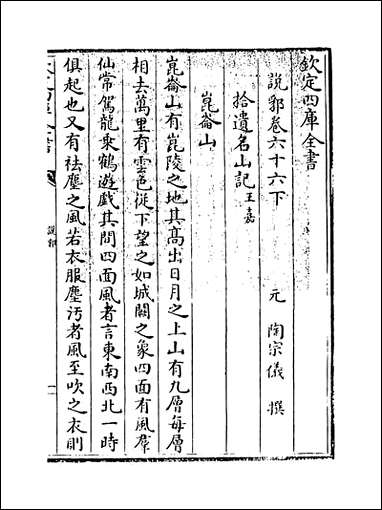 欽定四庫全書
說郛卷六十六下
元 陶宗儀 撰
拾遺名山記王嘉
崑崙山
崑崙山有崑陵之地其髙出日月之上山有九層毎層
相去萬里有雲色從下望之如城闕之象四面有風羣
仙常駕龍乗鶴遊戲其間四面風者言東南西北一時
俱起也又有祛塵之風若衣服塵汚者風至吹之衣則
說郛